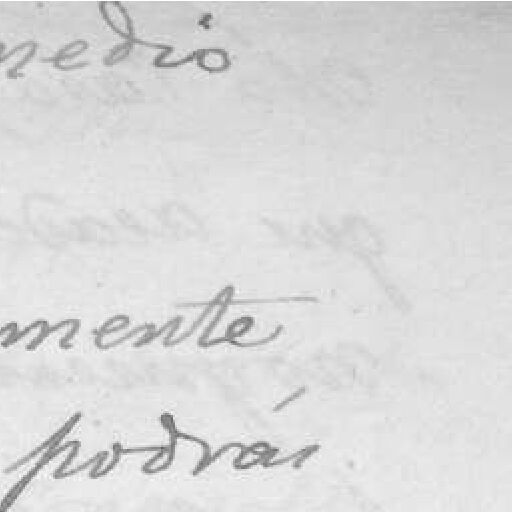 medio
mente
podrás